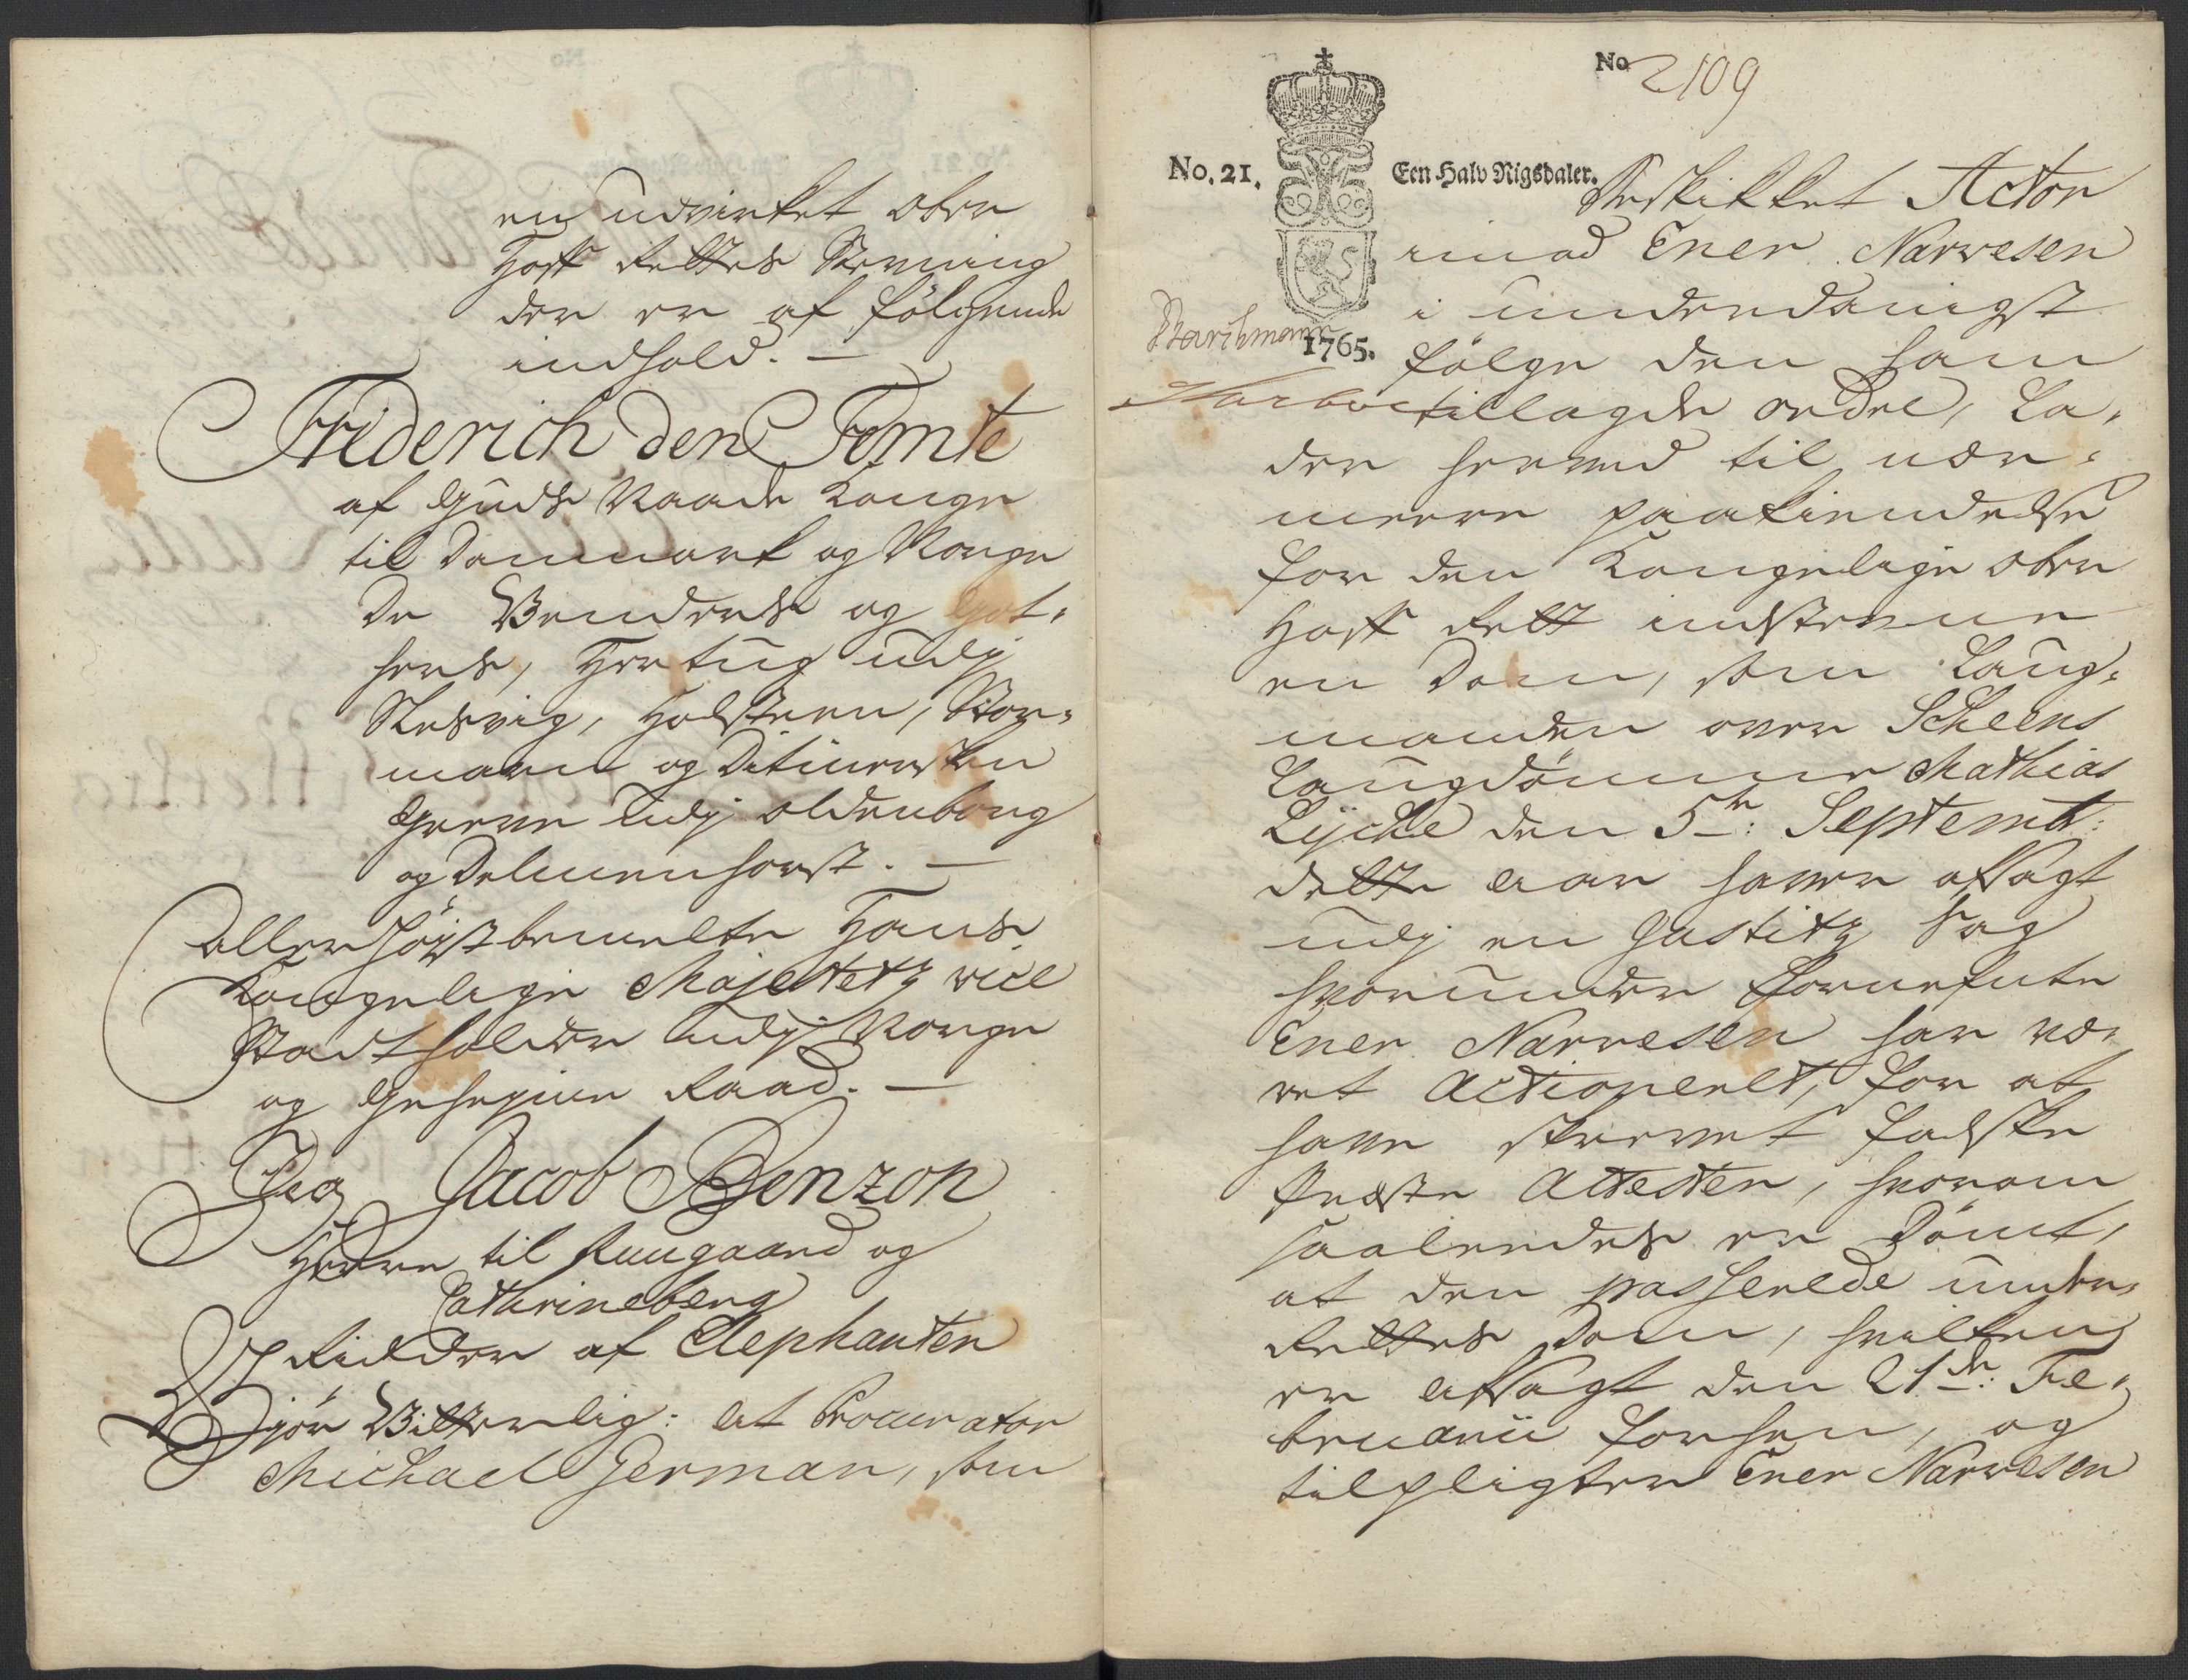 en udvirket Ober
Hoff Rettes Stevning
der er af følgende
indhold. —
Friderich den Femte
af Guds Naade Konge
til Danmark og Norge
De Venders og Got-
hers, Hertug udj
Slesvig, Holsteen, Stor-
marn og Ditmersken
Greve udj Oldenborg
og Delmenhorst. —
Allerhöystbemelte Hans
Kongelige Majestetz vice
Stadtholder udj Norge
og Geheyme Raad. —
Jeg Jacob Benzon
Herre til Ruugaard og
Cathrineberg
Ridder af Elephanten
Gjör Vitterlig: at Procurator
Michael German, som
No 2109
No. 21. Een Halv Rigsdaler.
1765.
Beskikket Actor
imod Ener Narvesen
i underdanigst
fölge den ham
tillagde ordre, La-
der hermed til nær-
meere paakiendelse
for den Kongelige Ober
Hoff Rett indstevne
en Dom, som Laug-
manden over Scheens
Laugdömme Mathias
Lÿche den 5te: Septemb:
dette Aar haver afsagt
udj en Justitz Sag
hvorunder fornefnte
Ener Narvesen har væ-
ret Actioneret, for at
have skrevet falske
Præste Attester, hvorom
saaledes er Dömt,
at den passerede under
Rettes Dom, hvilken
er afsagt den 21de: Fe-
bruarii forhen, og
tilpligter Ener Narvesen